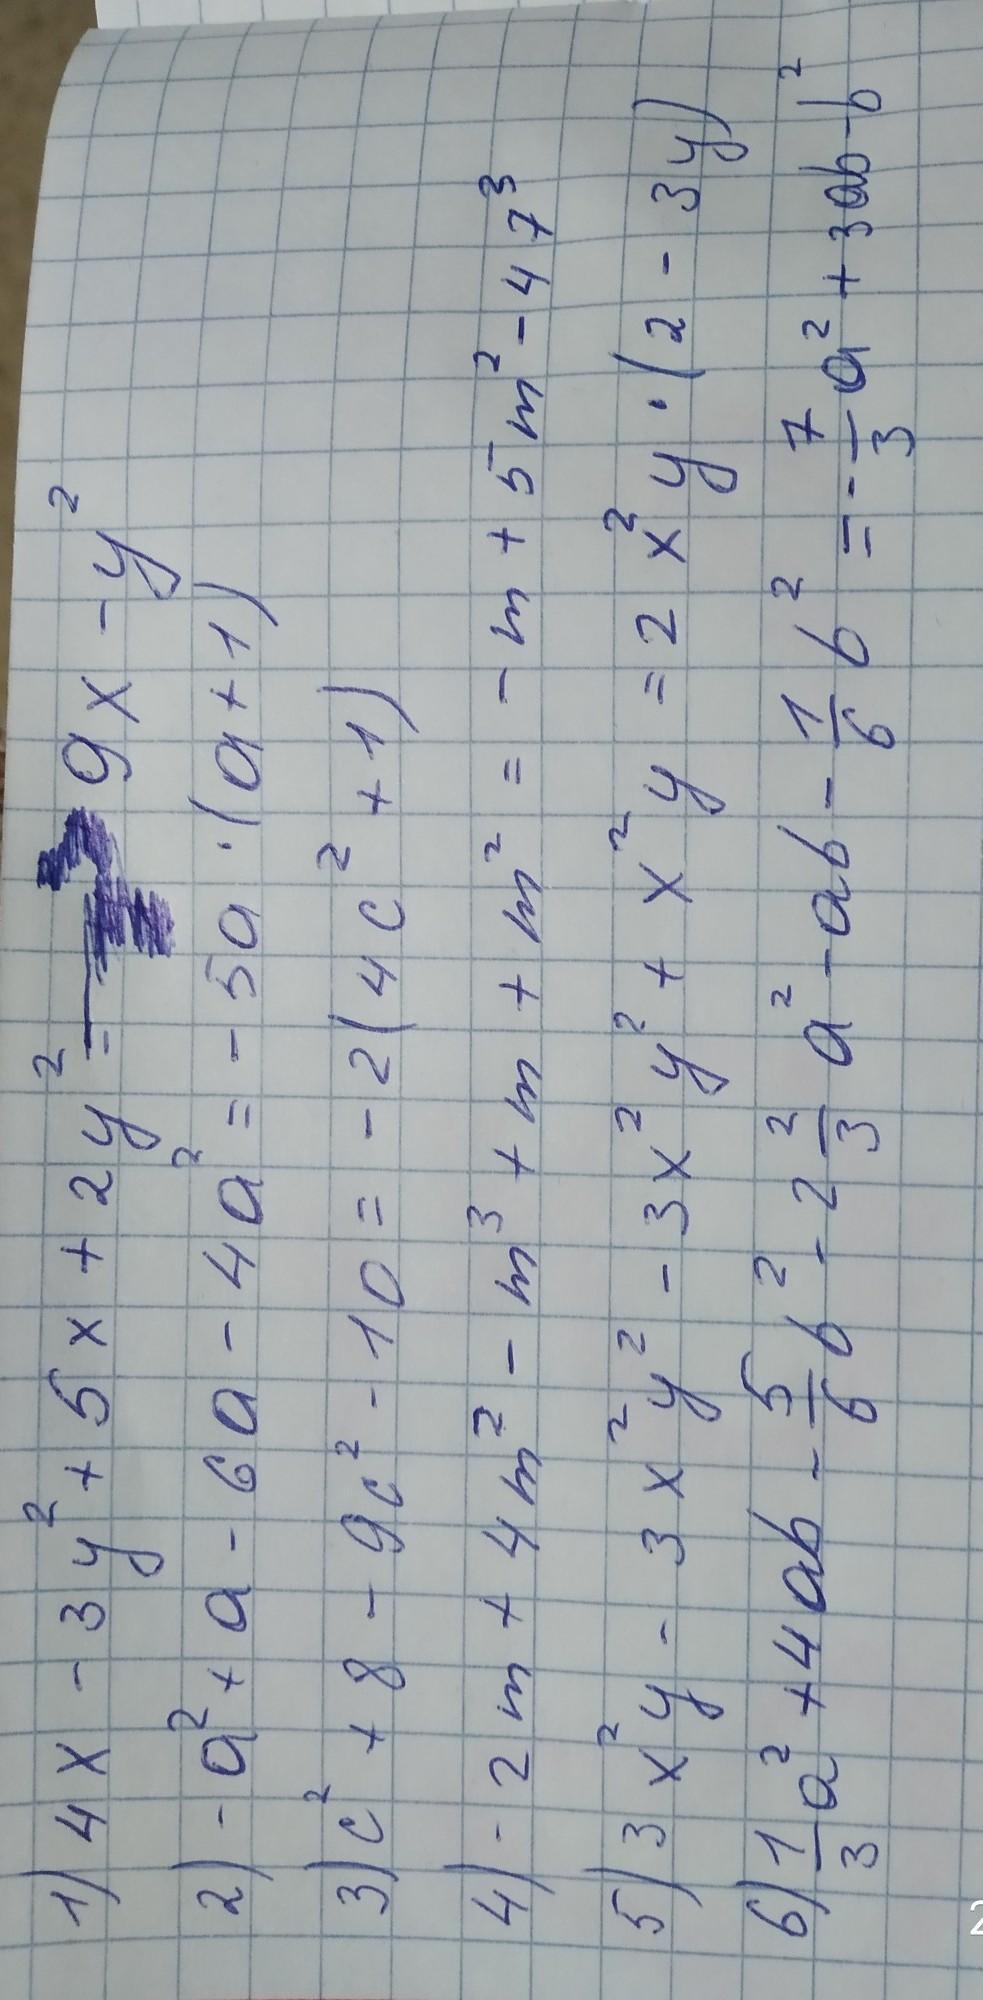 1) 4x - 3y² + 5x + 2y² = 9x - y²
2) - a² + a - 6a - 4a² = - 5a · (a + 1)
3) c² + 8 - 9c² - 10 = - 2(4c² + 1)
4) - 2m + 4m² - m³ + m + m² = - m + 5m² - 47³
5) 3x²y - 3x²y² - 3x²y² + x²y = 2x²y · (2 - 3y)
6) 1/3 a² + 4ab - 5/6 b² - 2 2/3 a² - ab - 1/6 b² = - 7/3 a² + 3ab - b²
2